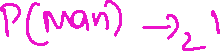 P(Man) → 2 !